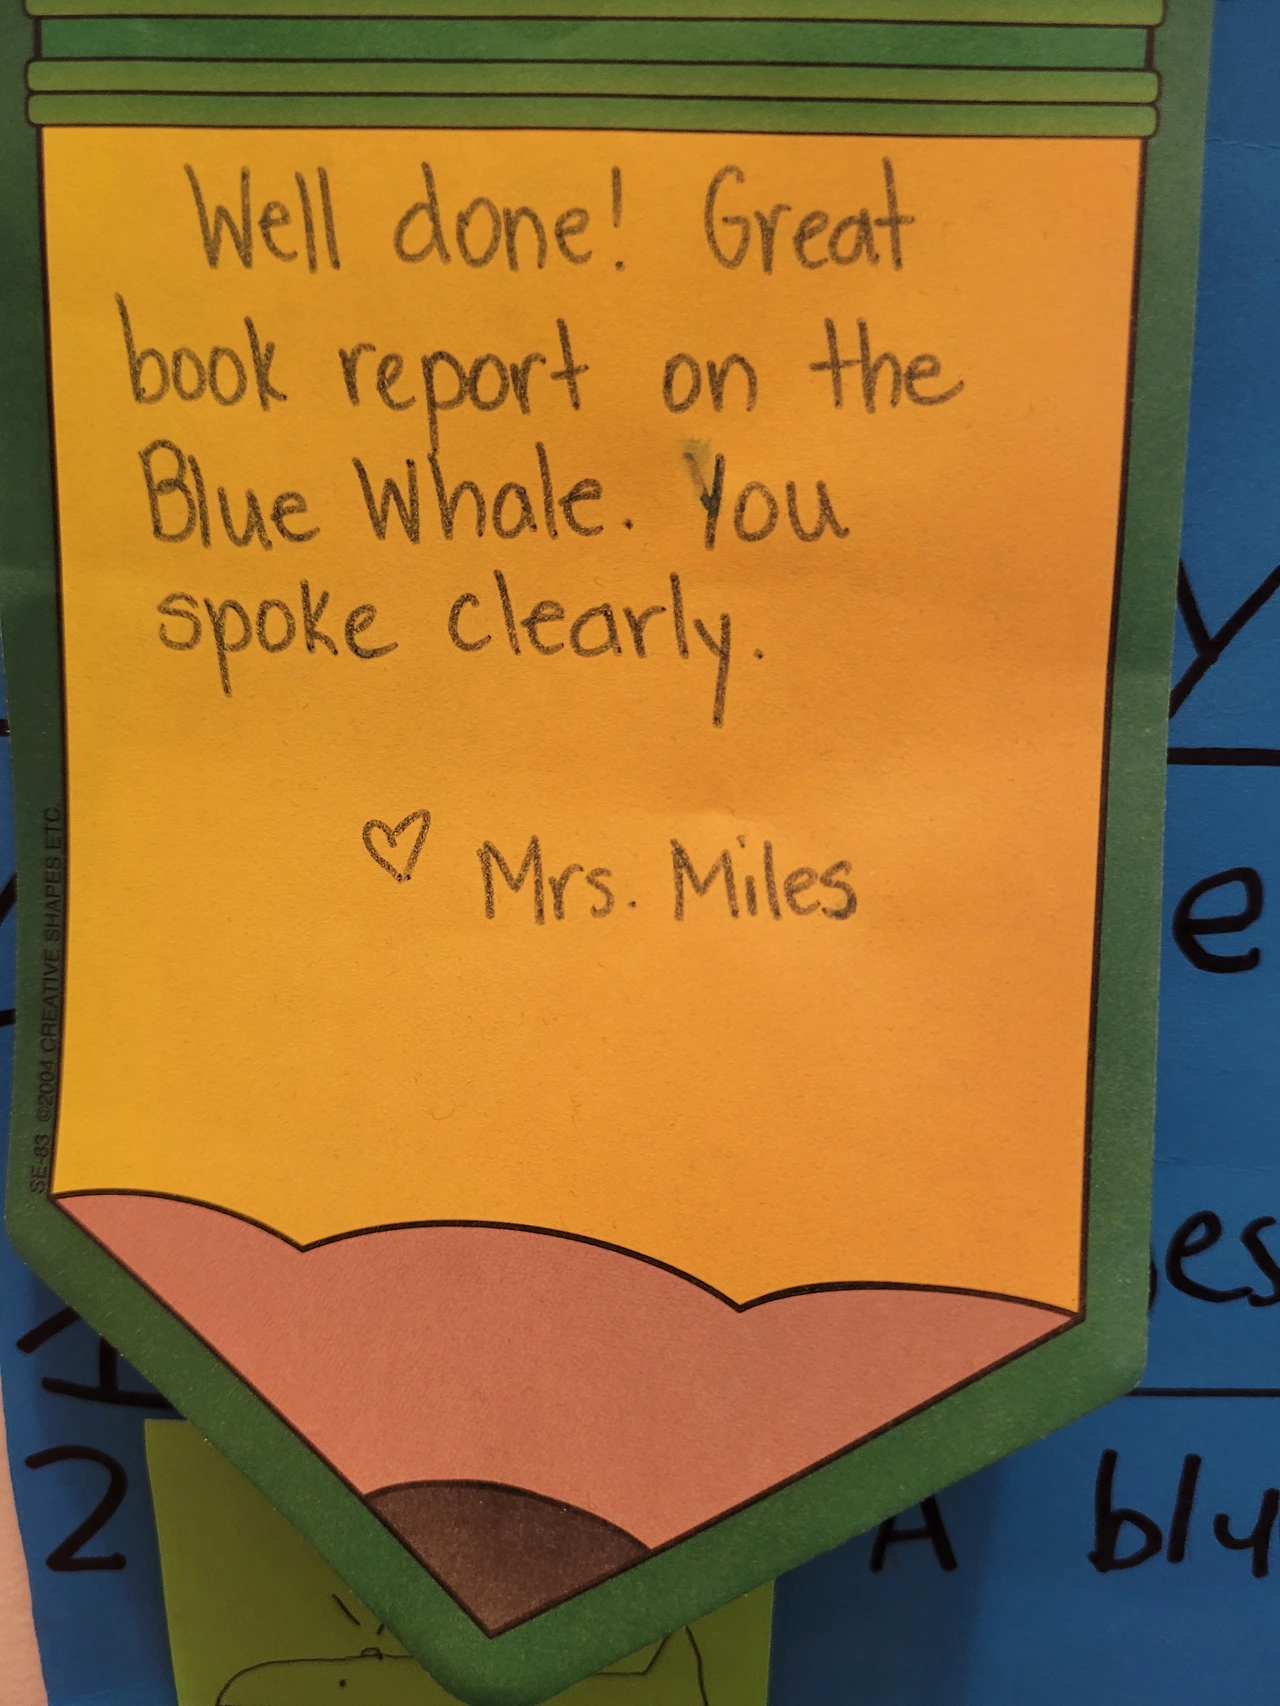 Well done! Great
book report on the
Blue Whale. You
spoke clearly.
♡ Mrs. Miles
SE-83 ©2004 CREATIVE SHAPES ETC.
y
e
es
2
A blu